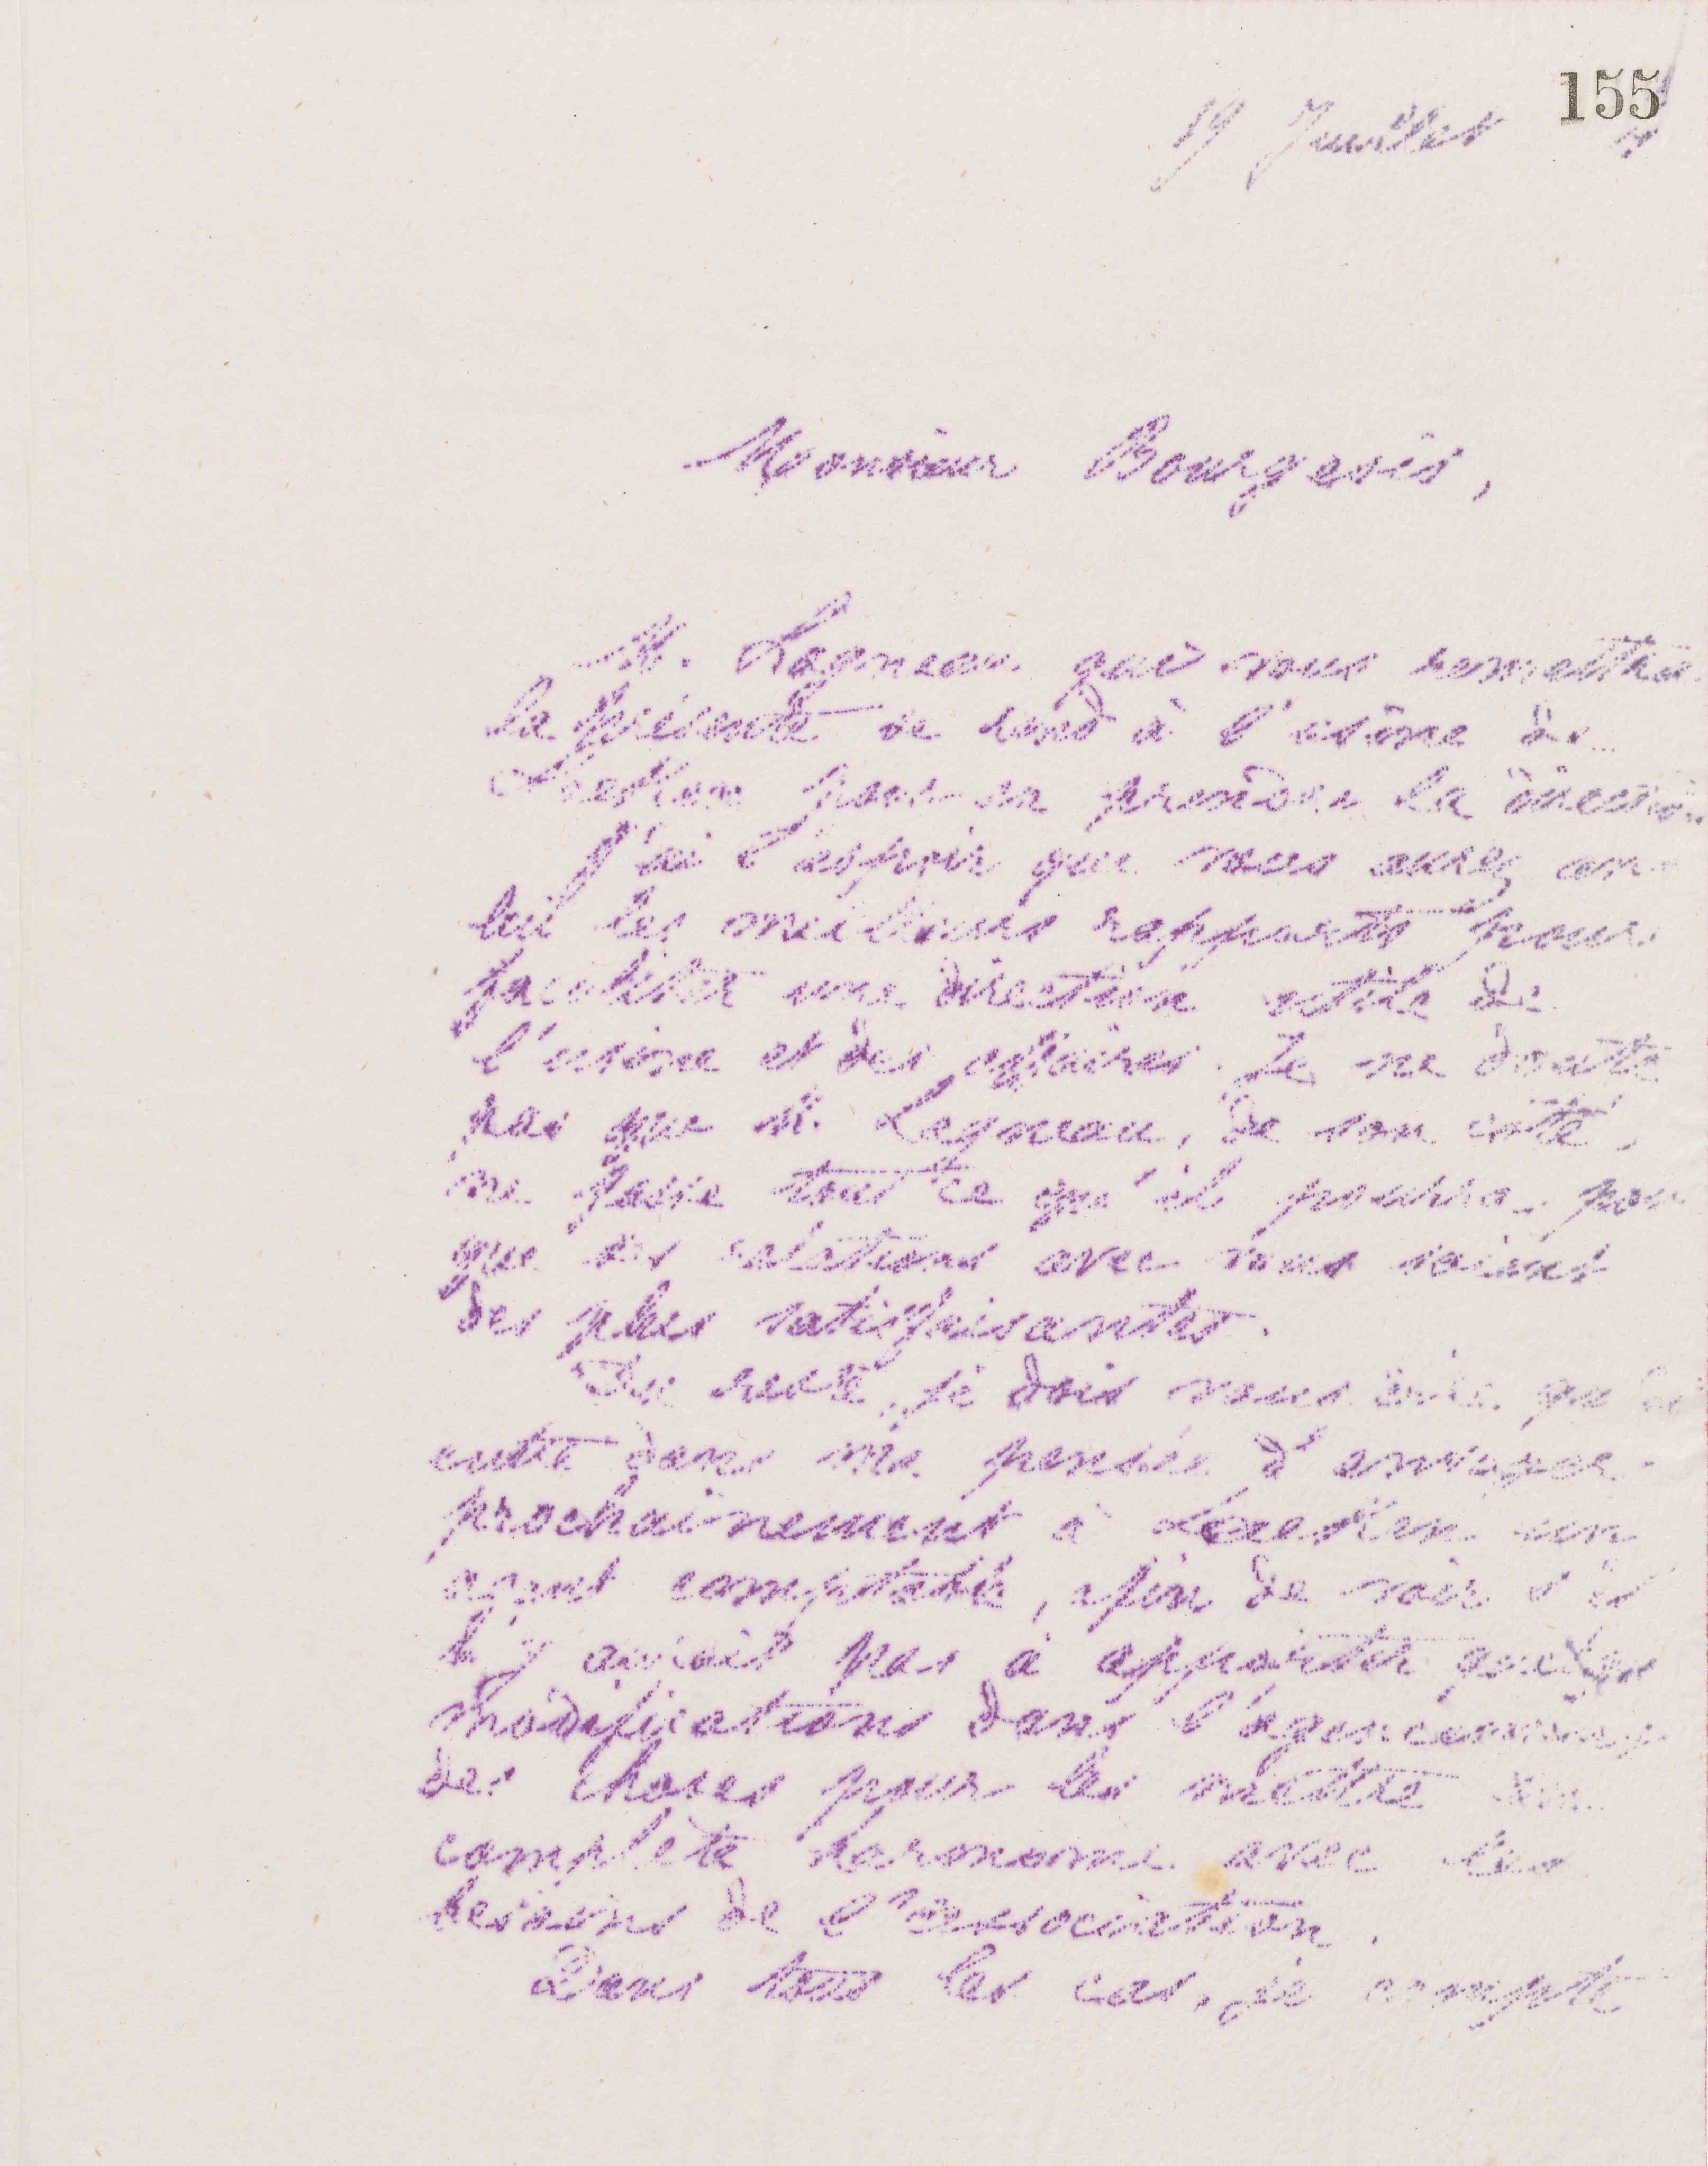 155
19 Juillet
Monsieur Bourgeois,
M. Lagneau qui vous remettra
la présente se rend à l'usine de
pour en prendre la direction
J'ai l'espoir que vous aurez avec
lui les meilleurs rapports pour
faciliter une direction utile de
l'usine et des affaires. Je ne doute
pas que M. Lagneau, de son côté,
ne fasse tout ce qu'il pourra pour
que ses relations avec vous soient
des plus satisfaisantes.
Du reste, je dois vous dire que
entre dans ma pensée d'envoyer
prochainement à Laeken un
agent comptable, afin de voir s'il
n'y aurait pas à apporter quelque
modifications dans l'agencement
des choses pour les mettre en
complète harmonie avec les
besoins de l'association.
Dans tous les cas, je compte